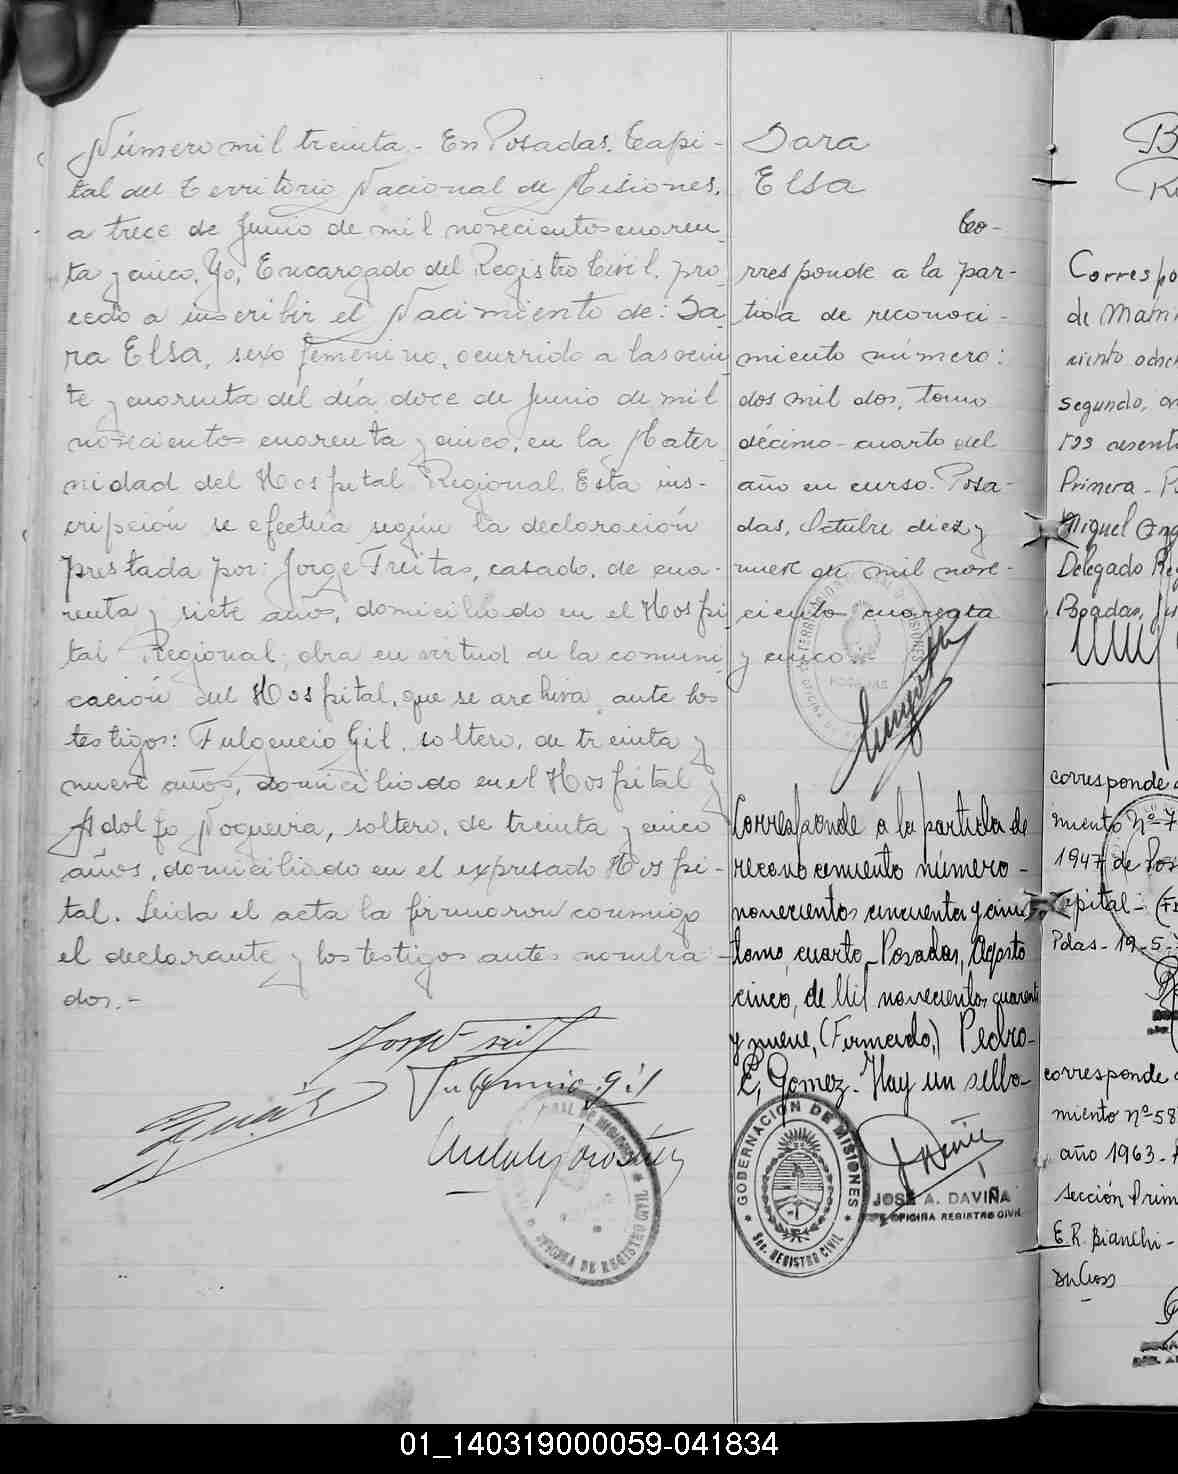 Número mil treinta.- En Posadas, Capi-
tal del Territorio Nacional de Misiones,
a trece de Junio de mil novecientos cuaren-
ta y cinco, Yo, Encargado del Registro Civil, pro
cedo a inscribir el Nacimiento de: Sa-
ra Elsa, sexo femenino, ocurrido a las vein
te y cuarenta del día doce de Junio de mil
novecientos cuarenta y cinco, en la Mater
nidad del Hospital Regional. Esta ins-
cripción se efectúa según la declaración
prestada por: Jorge Freitas, casado, de cua-
renta y siete años, domiciliado en el Hospi
tal Regional, obra en virtud de la comuni
cación del Hospital, que se archiva, ante los
testigos: Fulgencio Gil, soltero, de treinta y
nueve años, domiciliado en el Hospital y
Adolfo Nogueira, soltero, de treinta y cinco
años, domiciliado en el expresado Hospi-
tal. Leida el acta la firmaron conmigo
el declarante y los testigos antes nombra-
dos.-
Fulgencio Gil
OFICINA DE REGISTRO CIVIL
Sara
Elsa
Co-
rresponde a la par-
tida de reconoci-
miento número:
dos mil dos, tomo
décimo-cuarto del
año en curso. Posa-
das, Octubre diez y
nueve de mil nove-
ciento cuarenta
y cinco.-
Corresponde a la partida de
reconocimiento número-
novecientos cincuenta y cinco
tomo, cuarto,- Posadas, Agosto
cinco, de Mil novecientos cuarenta
y nueve, (Firmado,) Pedro-
E, Gomez- Hay un sello-
GOBERNACIÓN DE MISIONES
Sec. REGISTRO CIVIL
JOSÉ A. DAVIÑA
JEFE OFICINA REGISTRO CIVIL
B
Correspo
de Matri
segundo,
Primera-
Miguel Ang
Delegado Re
Posadas,
corresponde
miento Nº-7
1947 de Pos
Capital-
Pdas-19-5-
corresponde
miento nº-58
año 1963-
Sección Prim
E.R. Bianchi-
01_140319000059-041834